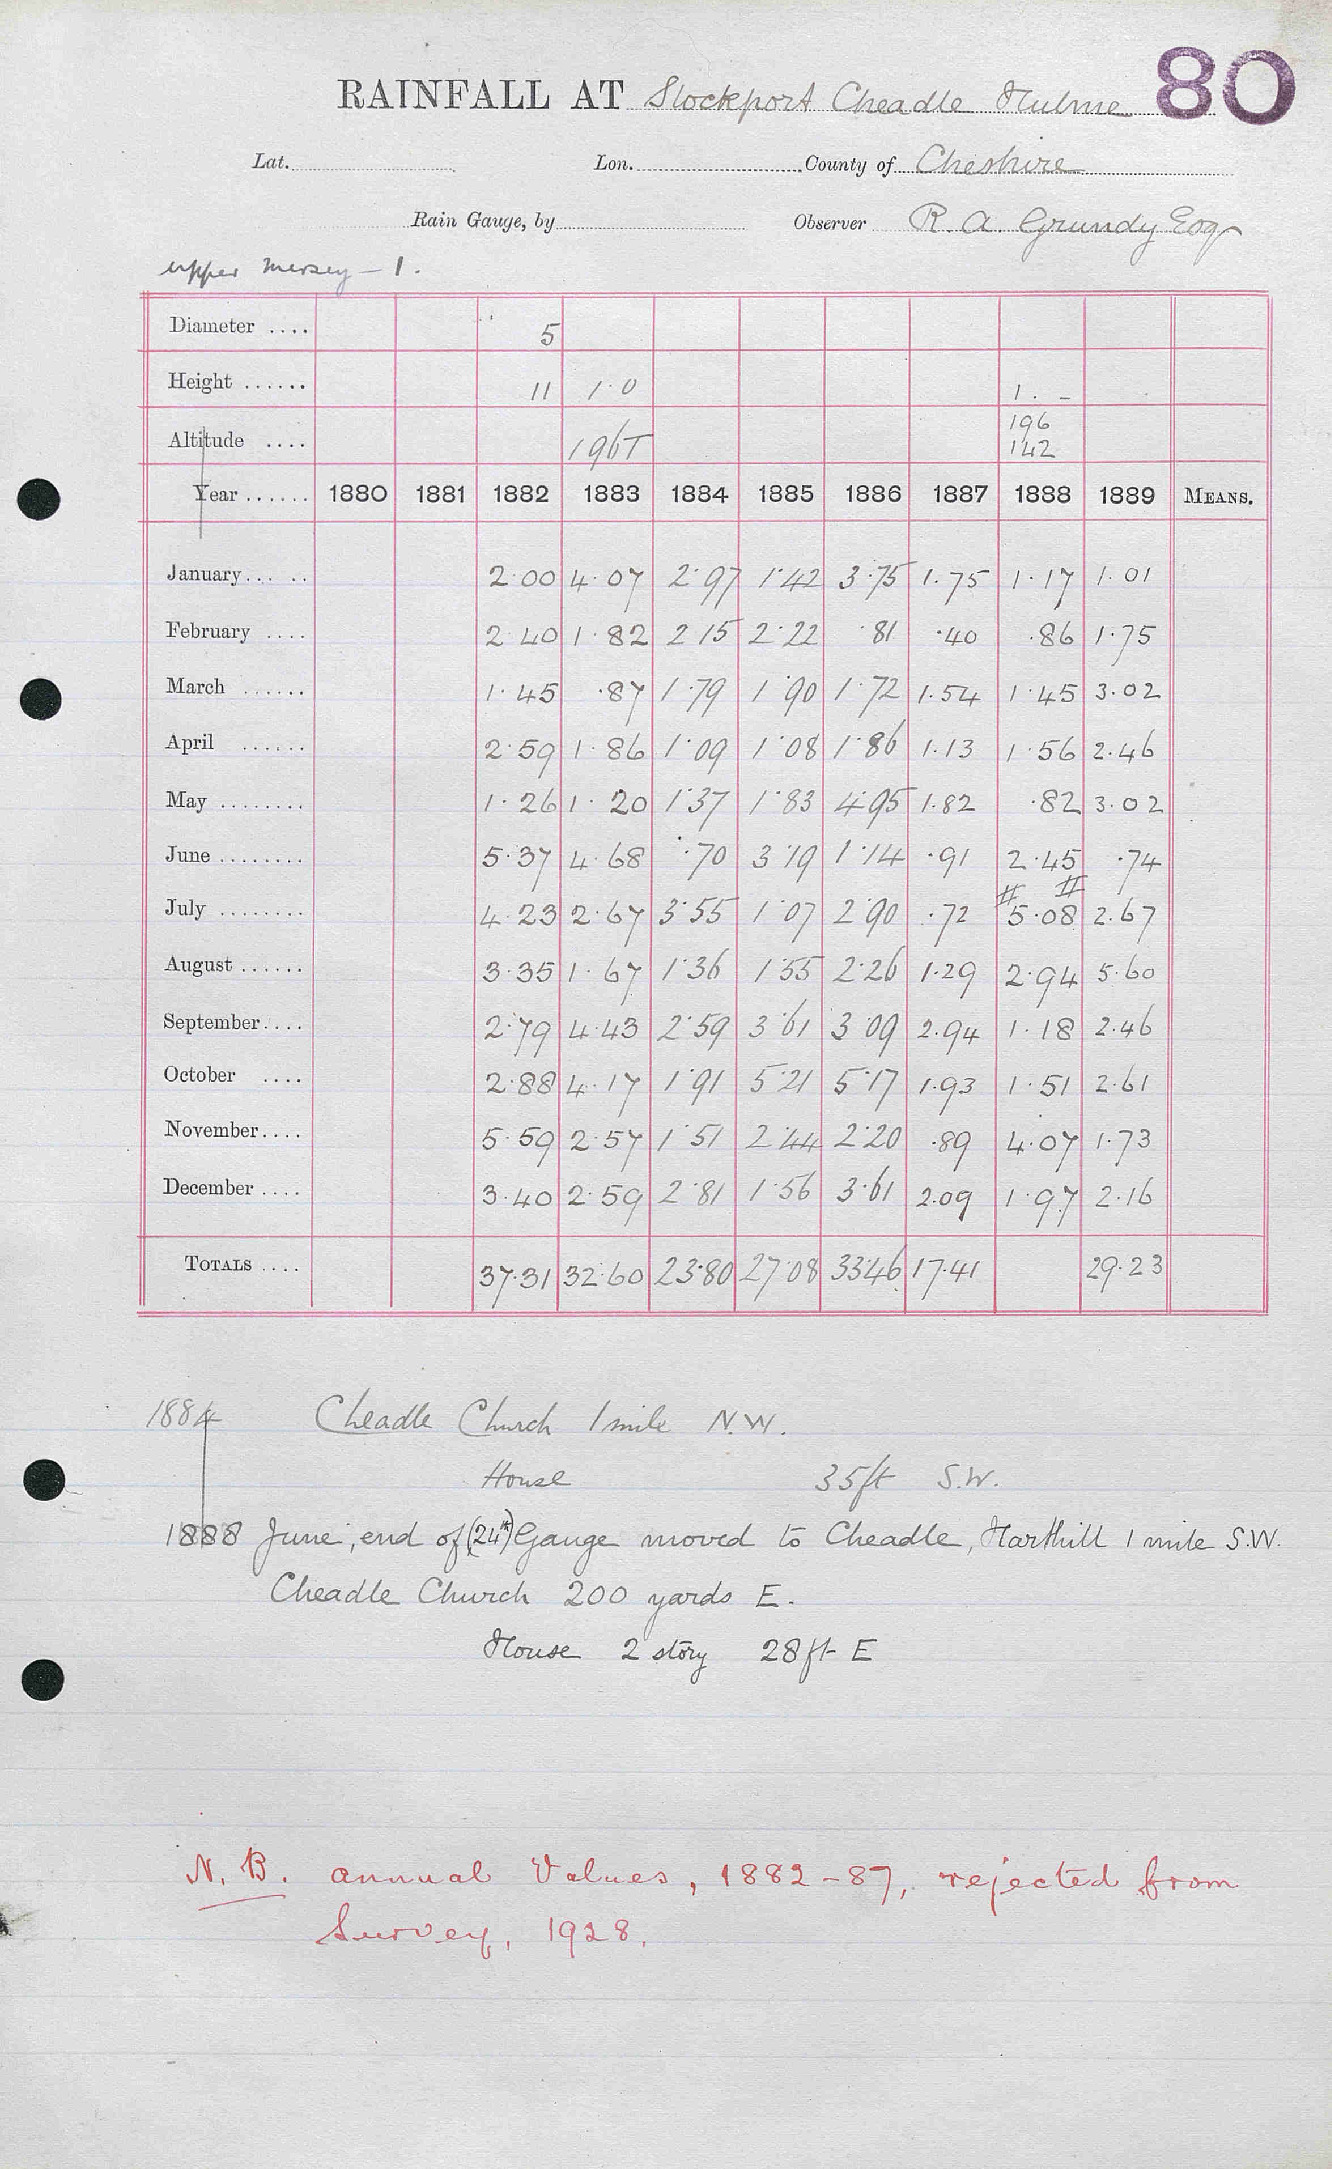 80
RAINFALL AT Stockport Cheadle Hulme
Lat. Lon. County of Cheshire
Rain Gauge, by Observer R. A. Grundy Esq
Upper Mersey - 1.
Diameter .... 5
Height ...... 11 1.0 1. -
Altitude .... 196T 196
142
Year ...... 1880 1881 1882 1883 1884 1885 1886 1887 1888 1889 MEANS.
January... .. 2.00 4.07 2.97 1.42 3.75 1.75 1.17 1.01
February .... 2.40 1.82 2.15 2.22 .81 .40 .86 1.75
March ...... 1.45 .87 1.79 1.90 1.72 1.54 1.45 3.02
April ...... 2.59 1.86 1.09 1.08 1.86 1.13 1.56 2.46
May ........ 1.26 1.20 1.37 1.83 4.95 1.82 .82 3.02
June ........ 5.37 4.68 .70 3.19 1.14 .91 2.45 .74
# #
July ........ 4.23 2.67 3.55 1.07 2.90 .72 5.08 2.67
August ...... 3.35 1.67 1.36 1.55 2.26 1.29 2.94 5.60
September.... 2.79 4.43 2.59 3.61 3.09 2.94 1.18 2.46
October .... 2.88 4.17 1.91 5.21 5.17 1.93 1.51 2.61
November.... 5.59 2.57 1.51 2.44 2.20 .89 4.07 1.73
December .... 3.40 2.59 2.81 1.56 3.61 2.09 1.97 2.16
TOTALS .... 37.31 32.60 23.80 27.08 33.46 17.41 29.23
1884 Cheadle Church 1 mile N.W.
House 35ft S.W.
1888 June, end of (24th) Gauge moved to Cheadle, Harthill 1 mile S.W.
Cheadle Church 200 yards E.
House 2 story 28ft E
N.B. annual Values, 1882-87, rejected from
Survey, 1928.